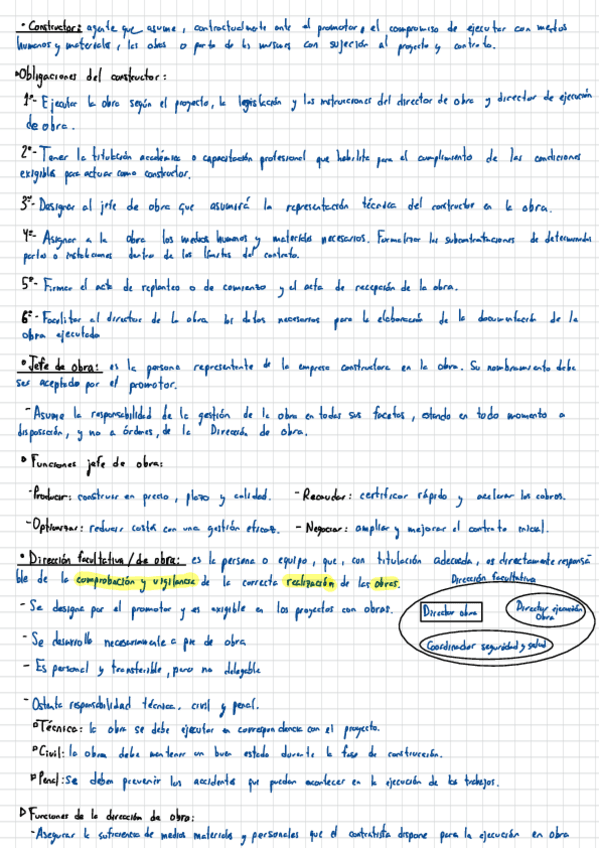 • Constructor: agente que asume, contractualmente ante el promotor, el compromiso de ejecutar con medios
humanos y materiales, las obras o parte de las mismas con sujeción al proyecto y contrato.
Obligaciones del constructor:
1º- Ejecutar la obra según el proyecto, la legislación y las instrucciones del director de obra y director de ejecución
de obra.
2º- Tener la titulación académica o capacitación profesional que habilita para el cumplimiento de las condiciones
exigibles para actuar como constructor.
3º- Designar al jefe de obra que asumirá la representación técnica del constructor en la obra.
4º- Asignar a la obra los medios humanos y materiales necesarios. Formalizar las subcontrataciones de determinadas
partes o instalaciones dentro de los límites del contrato.
5º- Firmar el acta de replanteo o de comienzo y el acta de recepción de la obra.
6º- Facilitar al director de la obra los datos necesarios para la elaboración de la documentación de la
obra ejecutada
• Jefe de obra: es la persona representante de la empresa constructora en la obra. Su nombramiento debe
ser aceptado por el promotor.
- Asume la responsabilidad de la gestión de la obra en todas sus facetas, estando en todo momento a
disposición, y no a órdenes, de la Dirección de obra.
Funciones jefe de obra:
-Producir: construir en precio, plazo y calidad. - Recaudar: certificar rápido y acelerar los cobros.
-Optimizar: reducir costes con una gestión eficaz. - Negociar: ampliar y mejorar el contrato inicial.
• Dirección facultativa / de obra: es la persona o equipo, que, con titulación adecuada, es directamente responsa
ble de la comprobación y vigilancia de la correcta realización de las obras.
Dirección facultativa
Director obra
Director ejecución
obra
Coordinador seguridad y salud
- Se designa por el promotor y es exigible en los proyectos con obras.
- Se desarrolla necesariamente a pie de obra
- Es personal y transferible, pero no delegable
- Ostenta responsabilidad técnica, civil y penal.
Técnica: la obra se debe ejecutar en correspondencia con el proyecto.
Civil: la obra debe mantener un buen estado durante la fase de construcción.
Penal: se deben prevenir los accidentes que puedan acontecer en la ejecución de los trabajos.
Funciones de la dirección de obra:
-Asegurar la suficiencia de medios materiales y personales que el contratista dispone para la ejecución en obra